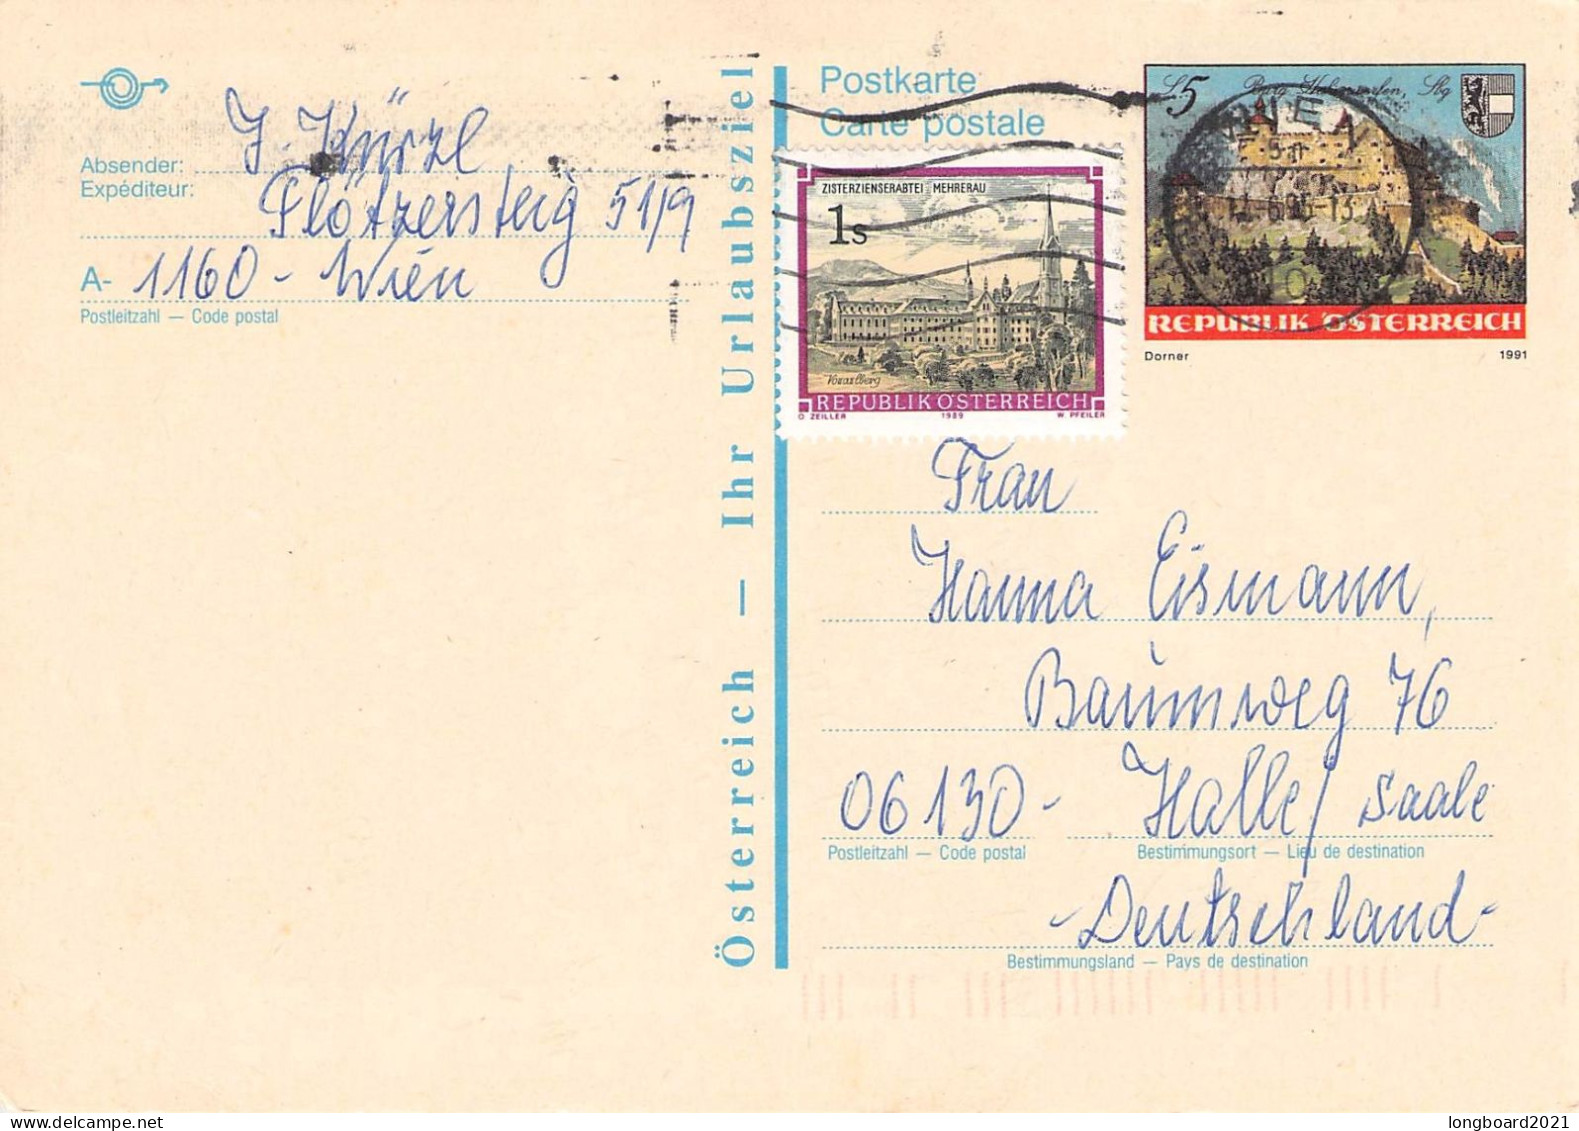 Absender:
Expéditeur:
J. Kürzl
Flötzersteig 51/9
A- 1160 - Wien
Postleitzahl — Code postal
Österreich — Ihr Urlaubsziel
Postkarte
Carte postale
ZISTERZIENSERABTEI MEHRERAU
1s
Vorarlberg
REPUBLIK ÖSTERREICH
O. ZEILLER 1989 W. PFEILER
S 5 Burg Hohenwerfen, Sbg
REPUBLIK ÖSTERREICH
Dorner 1991
Frau
Hanna Eismann,
Baumweg 76
06130 - Halle / Saale
Postleitzahl — Code postal Bestimmungsort — Lieu de destination
- Deutschland -
Bestimmungsland — Pays de destination
longboard2021